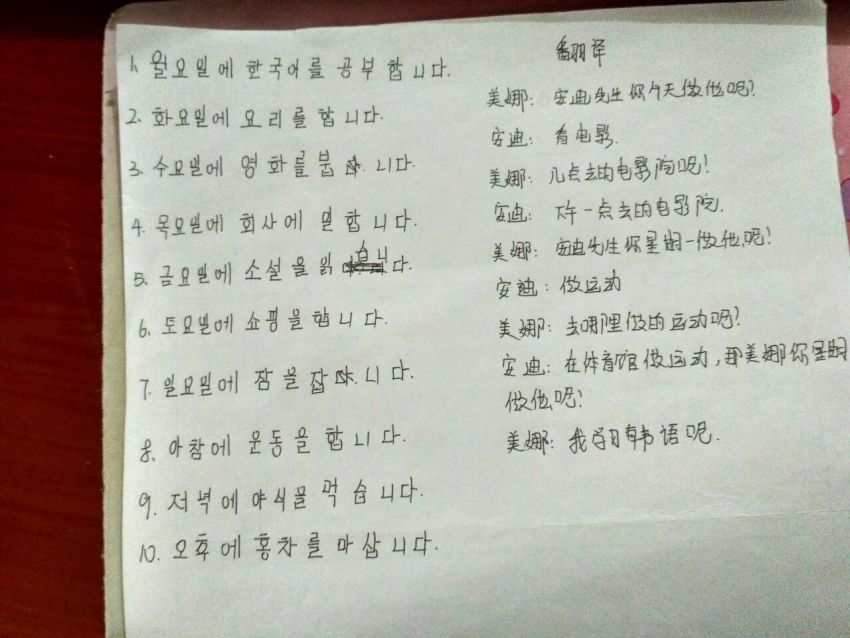 1. 월요일에 한국어를 공부합니다.
2. 화요일에 요리를 합니다.
3. 수요일에 영화를 봅 니다.
4. 목요일에 회사에 일합니다.
5. 금요일에 소설을 읽 습니다.
6. 토요일에 쇼핑을 합니다.
7. 일요일에 잠을 잡 니다.
8. 아참에 운동을 합니다.
9. 저녁에 야식을 먹습니다.
10. 오후에 홍차를 마삽니다.
翻译
美娜: 安迪先生你今天做什么呢?
安迪: 看电影.
美娜: 几点去的电影院呢!
安迪: 下午一点去的电影院.
美娜: 安迪先生你星期一做什么呢?
安迪: 做运动
美娜: 去哪里做的运动呢?
安迪: 在体育馆做运动,那美娜你星期
做什么呢?
美娜: 我学习韩语呢.